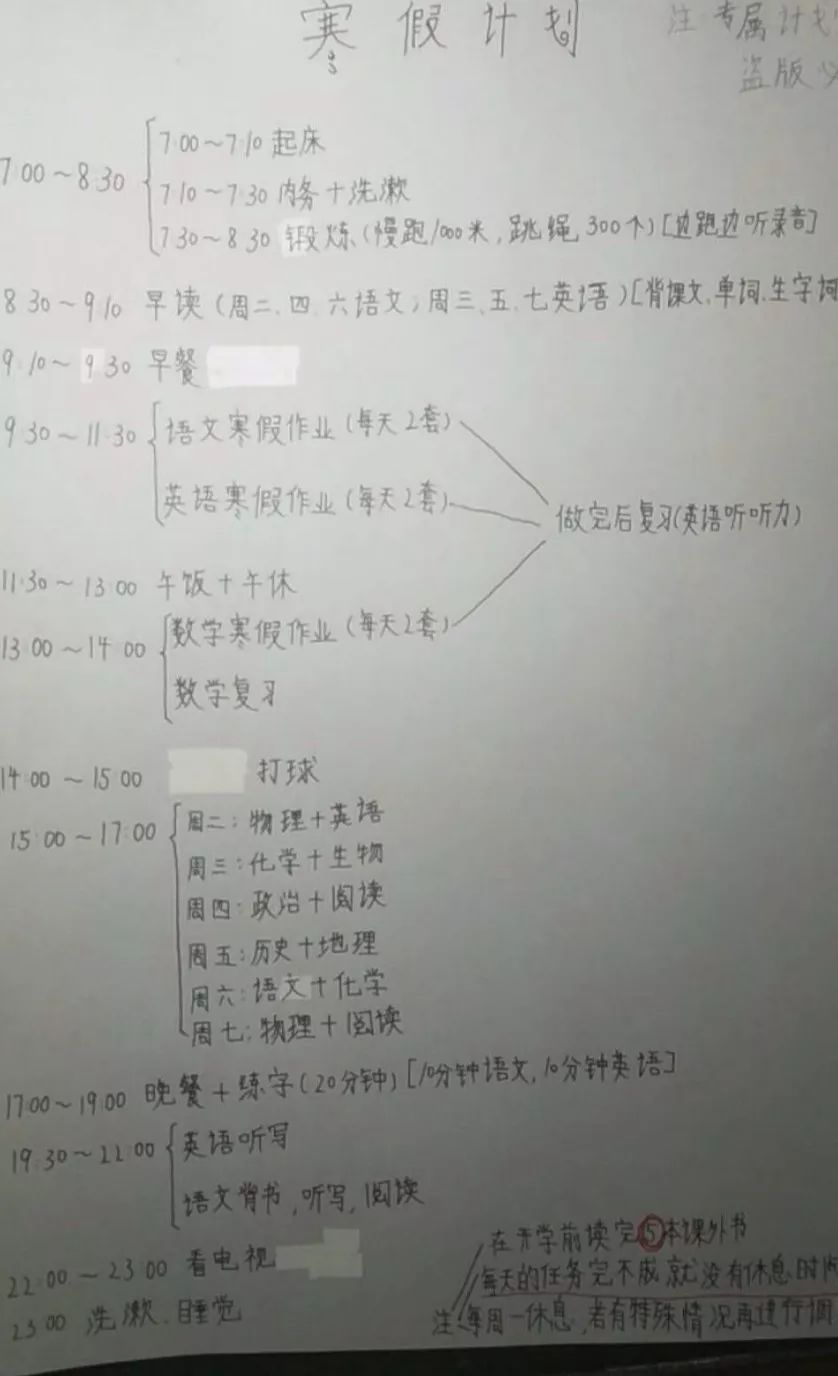 寒假计划
注 专属计划
盗版
7:00~8:30
7:00~7:10 起床
7:10~7:30 内务+洗漱
7:30~8:30 锻炼(慢跑1000米,跳绳300个)[边跑边听录音]
8:30~9:10 早读(周二、四、六语文;周三、五、七英语)[背课文,单词.生字词
9:10~9:30 早餐
9:30~11:30
语文寒假作业(每天2套)
英语寒假作业(每天2套)
做完后复习(英语听听力)
11:30~13:00 午饭+午休
13:00~14:00
数学寒假作业(每天2套)
数学复习
14:00~15:00 打球
15:00~17:00
周二:物理+英语
周三:化学+生物
周四:政治+阅读
周五:历史+地理
周六:语文+化学
周七:物理+阅读
17:00~19:00 晚餐+练字(20分钟)[10分钟语文,10分钟英语]
19:30~22:00
英语听写
语文背书,听写,阅读
22:00~23:00 看电视
23:00 洗漱.睡觉
注
在开学前读完⑤本课外书
每天的任务完不成就没有休息时间
每周一休息,若有特殊情况再进行调